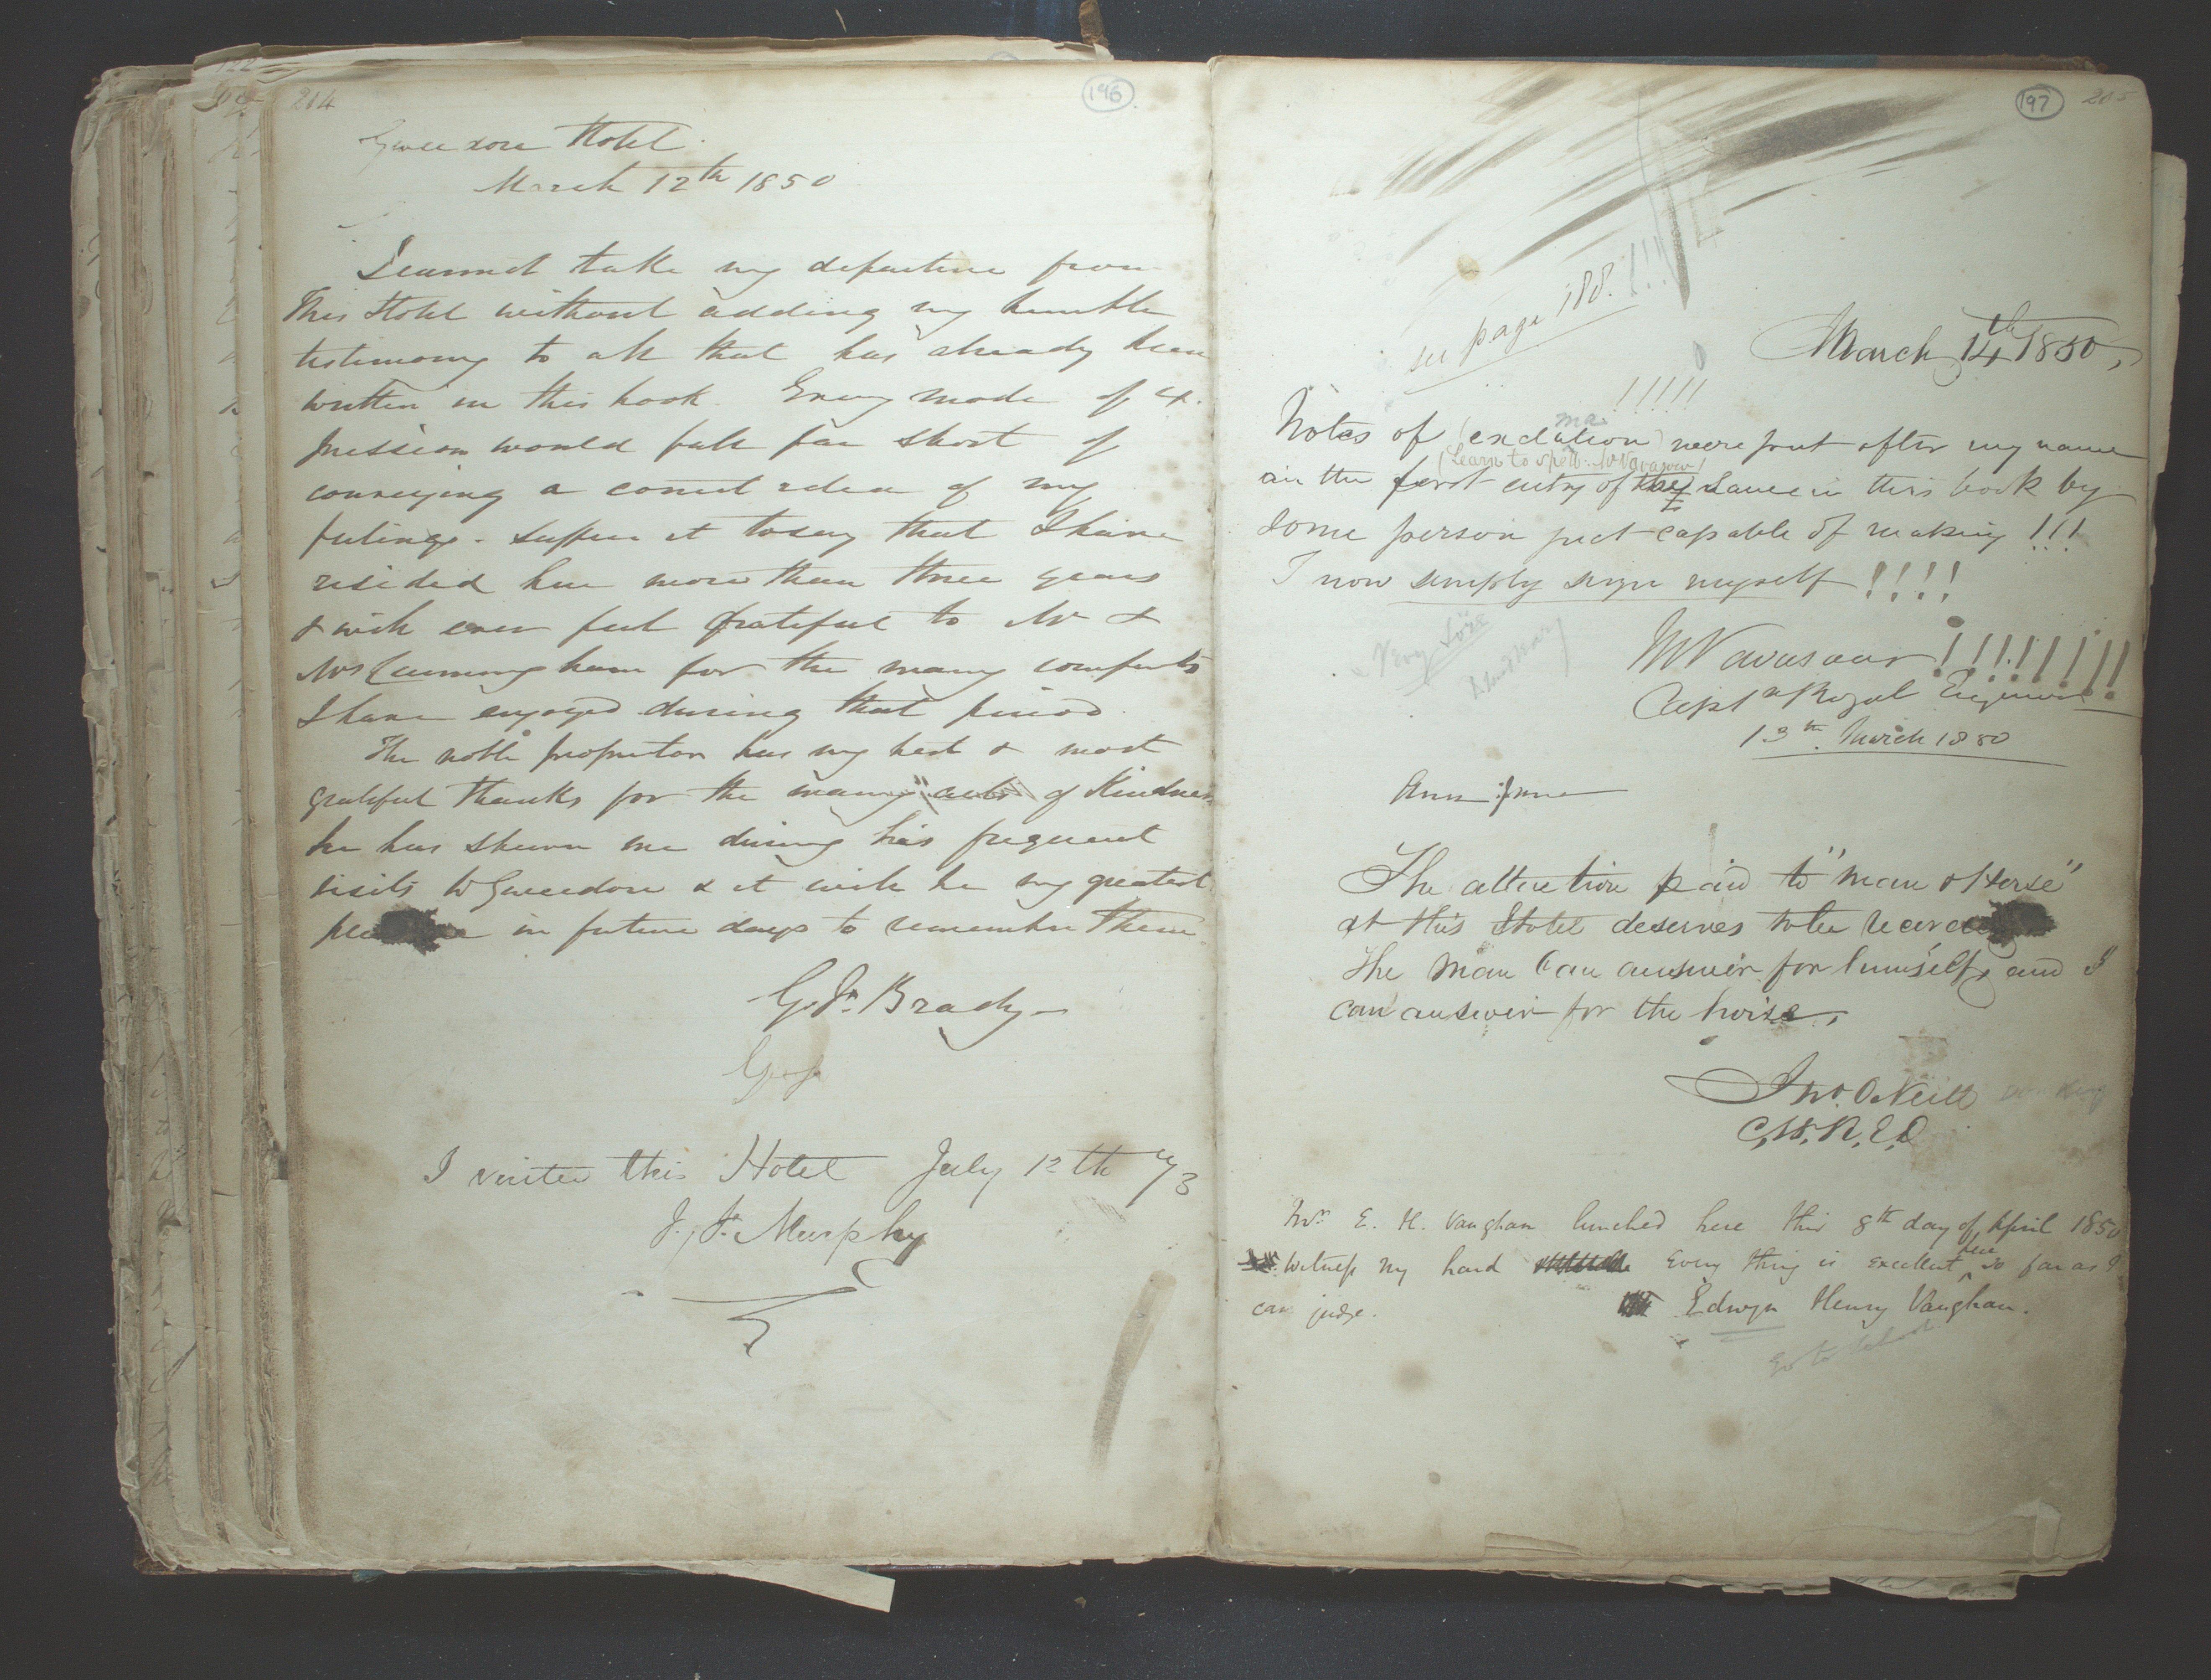 204
196
Gweedore Hotel.
March 12th 1850
I cannot take my departure from
This Hotel without adding my humble
testimony to all that has already been
written in this book. Every mode of ex-
pression would fall far short of
conveying a correct idea of my
feelings. Suffice it to say that I have
resided here more than three years
& will ever feel grateful to Mr &
Mrs Cunningham for the many comforts
I have enjoyed during that period.
The noble proprietor has my best & most
grateful thanks for the many "acts" of Kindness
he has shewn me during his frequent
visits to Gweedore & it will be my greatest
pleasure in future days to remember them.
G. F. Brady
I visited this Hotel July 12th
J. F. Murphy
197
205
see page 188.!!!
March 14th 1850,
!!!!!
ma
Notes of (exclation) were put after my name
(Learn to spell. Mr Vavasour)
in the first entry of the same in this book by
some person just capable of making !!!
I now simply sign myself !!!!
Very
M Vavasour !!!!!!!!!
Capt n Royal Engineers
13th. March 1850
Ann Jane
The attention paid to "man & Horse"
at this Hotel deserves to be
The Man can answer for himself, and I
can answer for the horse,
Jno. O Neill
Mr. E. H. Vaughan lunched here this 8th day of April 1850
Witness my hand Every thing is excellent here so far as I
can judge.
Edwyn Henry Vaughan.
Go to School